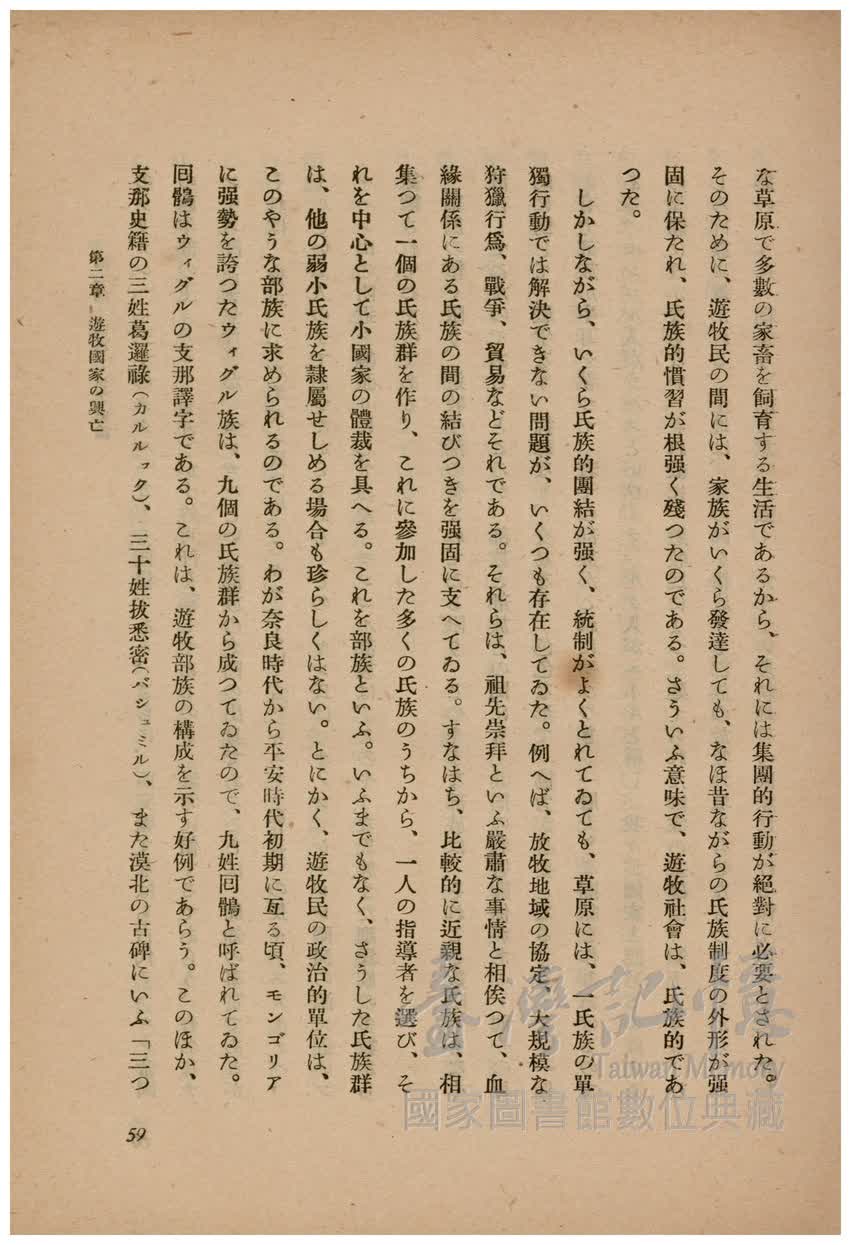 な草原で多數の家畜を飼育する生活であるから、それには集團的行動が絕對に必要とされた。
そのために、遊牧民の間には、家族がいくら發達しても、なほ昔ながらの氏族制度の外形が强
固に保たれ、氏族的慣習が根强く殘つたのである。さういふ意味で、遊牧社會は、氏族的であ
つた。
しかしながら、いくら氏族的團結が强く、統制がよくとれてゐても、草原には、一氏族の單
獨行動では解決できない問題が、いくつも存在してゐた。例へば、放牧地域の協定、大規模な
狩獵行爲、戰爭、貿易などそれである。それらは、祖先崇拜といふ嚴肅な事情と相俟つて、血
緣關係にある氏族の間の結びつきを强固に支へてゐる。すなはち、比較的に近親な氏族は、相
集つて一個の氏族群を作り、これに參加した多くの氏族のうちから、一人の指導者を選び、そ
れを中心として小國家の體裁を具へる。これを部族といふ。いふまでもなく、さうした氏族群
は、他の弱小氏族を隷屬せしめる場合も珍らしくはない。とにかく、遊牧民の政治的單位は、
このやうな部族に求められるのである。わが奈良時代から平安時代初期に亙る頃、モンゴリア
に强勢を誇つたウィグル族は、九個の氏族群から成つてゐたので、九姓囘鶻と呼ばれてゐた。
囘鶻はウィグルの支那譯字である。これは、遊牧部族の構成を示す好例であらう。このほか、
支那史籍の三姓葛邏祿(カルルック)、三十姓拔悉密(バシュミル)、また漠北の古碑にいふ「三つ
第二章 遊牧國家の興亡
59
臺灣記憶
Taiwan Memory
國家圖書館數位典藏